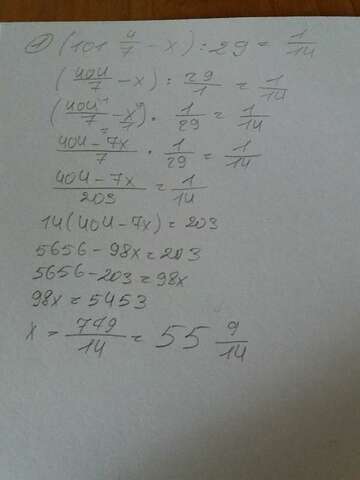 ① (101 4/7 - x) : 29 = 1/14
(404/7 - x) : 29/1 = 1/14
(404/7 - x/1) · 1/29 = 1/14
404 - 7x/7 · 1/29 = 1/14
404 - 7x/203 = 1/14
14(404 - 7x) = 203
5656 - 98x = 203
5656 - 203 = 98x
98x = 5453
x = 779/14 = 55 9/14